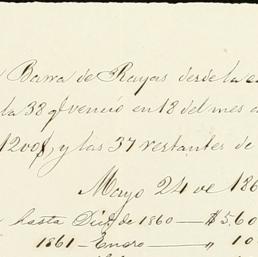 Barra de Rayas desde la
la 38 q^e venció en 18 del mes
y las 37 restantes de
Mayo 24 de 186
hasta Dic^e de 1860 — $5.60
1861 — Enero — " 10